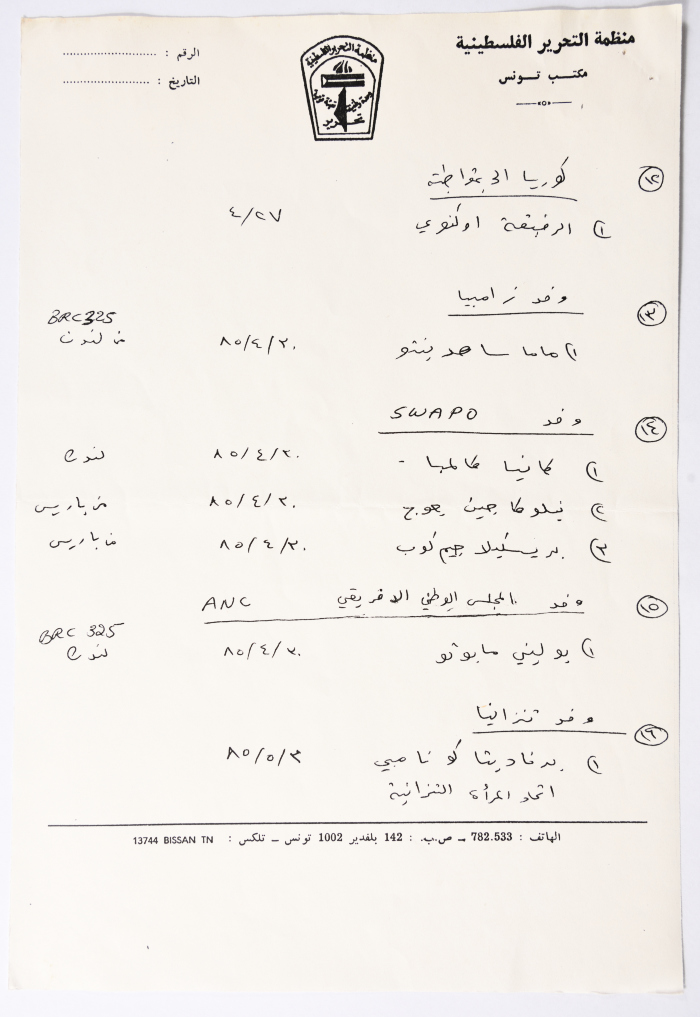 منظمة التحرير الفلسطينية
مكتب تونس
الرقم :
التاريخ :
منظمة التحرير الفلسطينية
وحدة وطنية تعبئة قومية
تحرير
١٢ كوريا الديمقراطية
١) الرفيقة اوكنوي ٤/٢٧
١٣ وفد زامبيا
BRC 325
١) ماما ساهد ينتو ٨٥/٤/٣٠ من لندن
١٤ وفد SWAPO
١) كانيا كالمبا - ٨٥/٤/٣٠ لندن
٢) نيلوكا جين يعوج ٨٥/٤/٣٠ من باريس
٣) بريسكيلا جيم كوب ٨٥/٤/٣٠ من باريس
١٥ وفد المجلس الوطني الافريقي ANC
BRC 325
١) بوليني مابوتو ٨٥/٤/٣٠ لندن
١٦ وفد تنزانيا
١) برفاديتا كونامبي ٨٥/٥/٣
اتحاد المرأة التنزانية
الهاتف : 782.533 ـ ص.ب. : 142 بلفدير 1002 تونس ـ تلكس : 13744 BISSAN TN